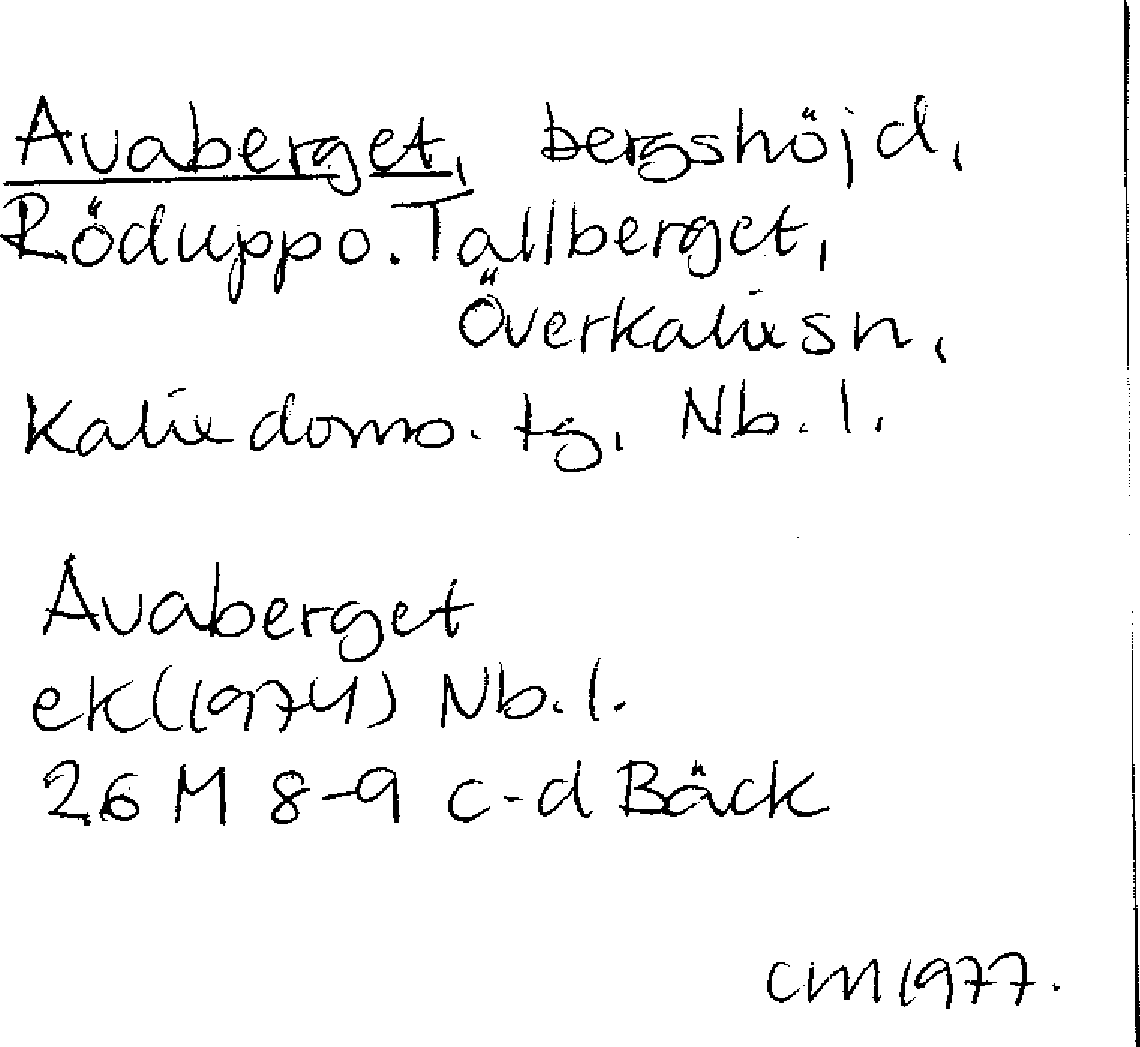 Avaberget, bergshöjd,
Röduppo. Tallberget,
Överkalix sn,
Kalix doms. tg, Nb. l.
Avaberget
ek (1974) Nb. l.
26 M 8-9 c-d Bäck
CM 1977.